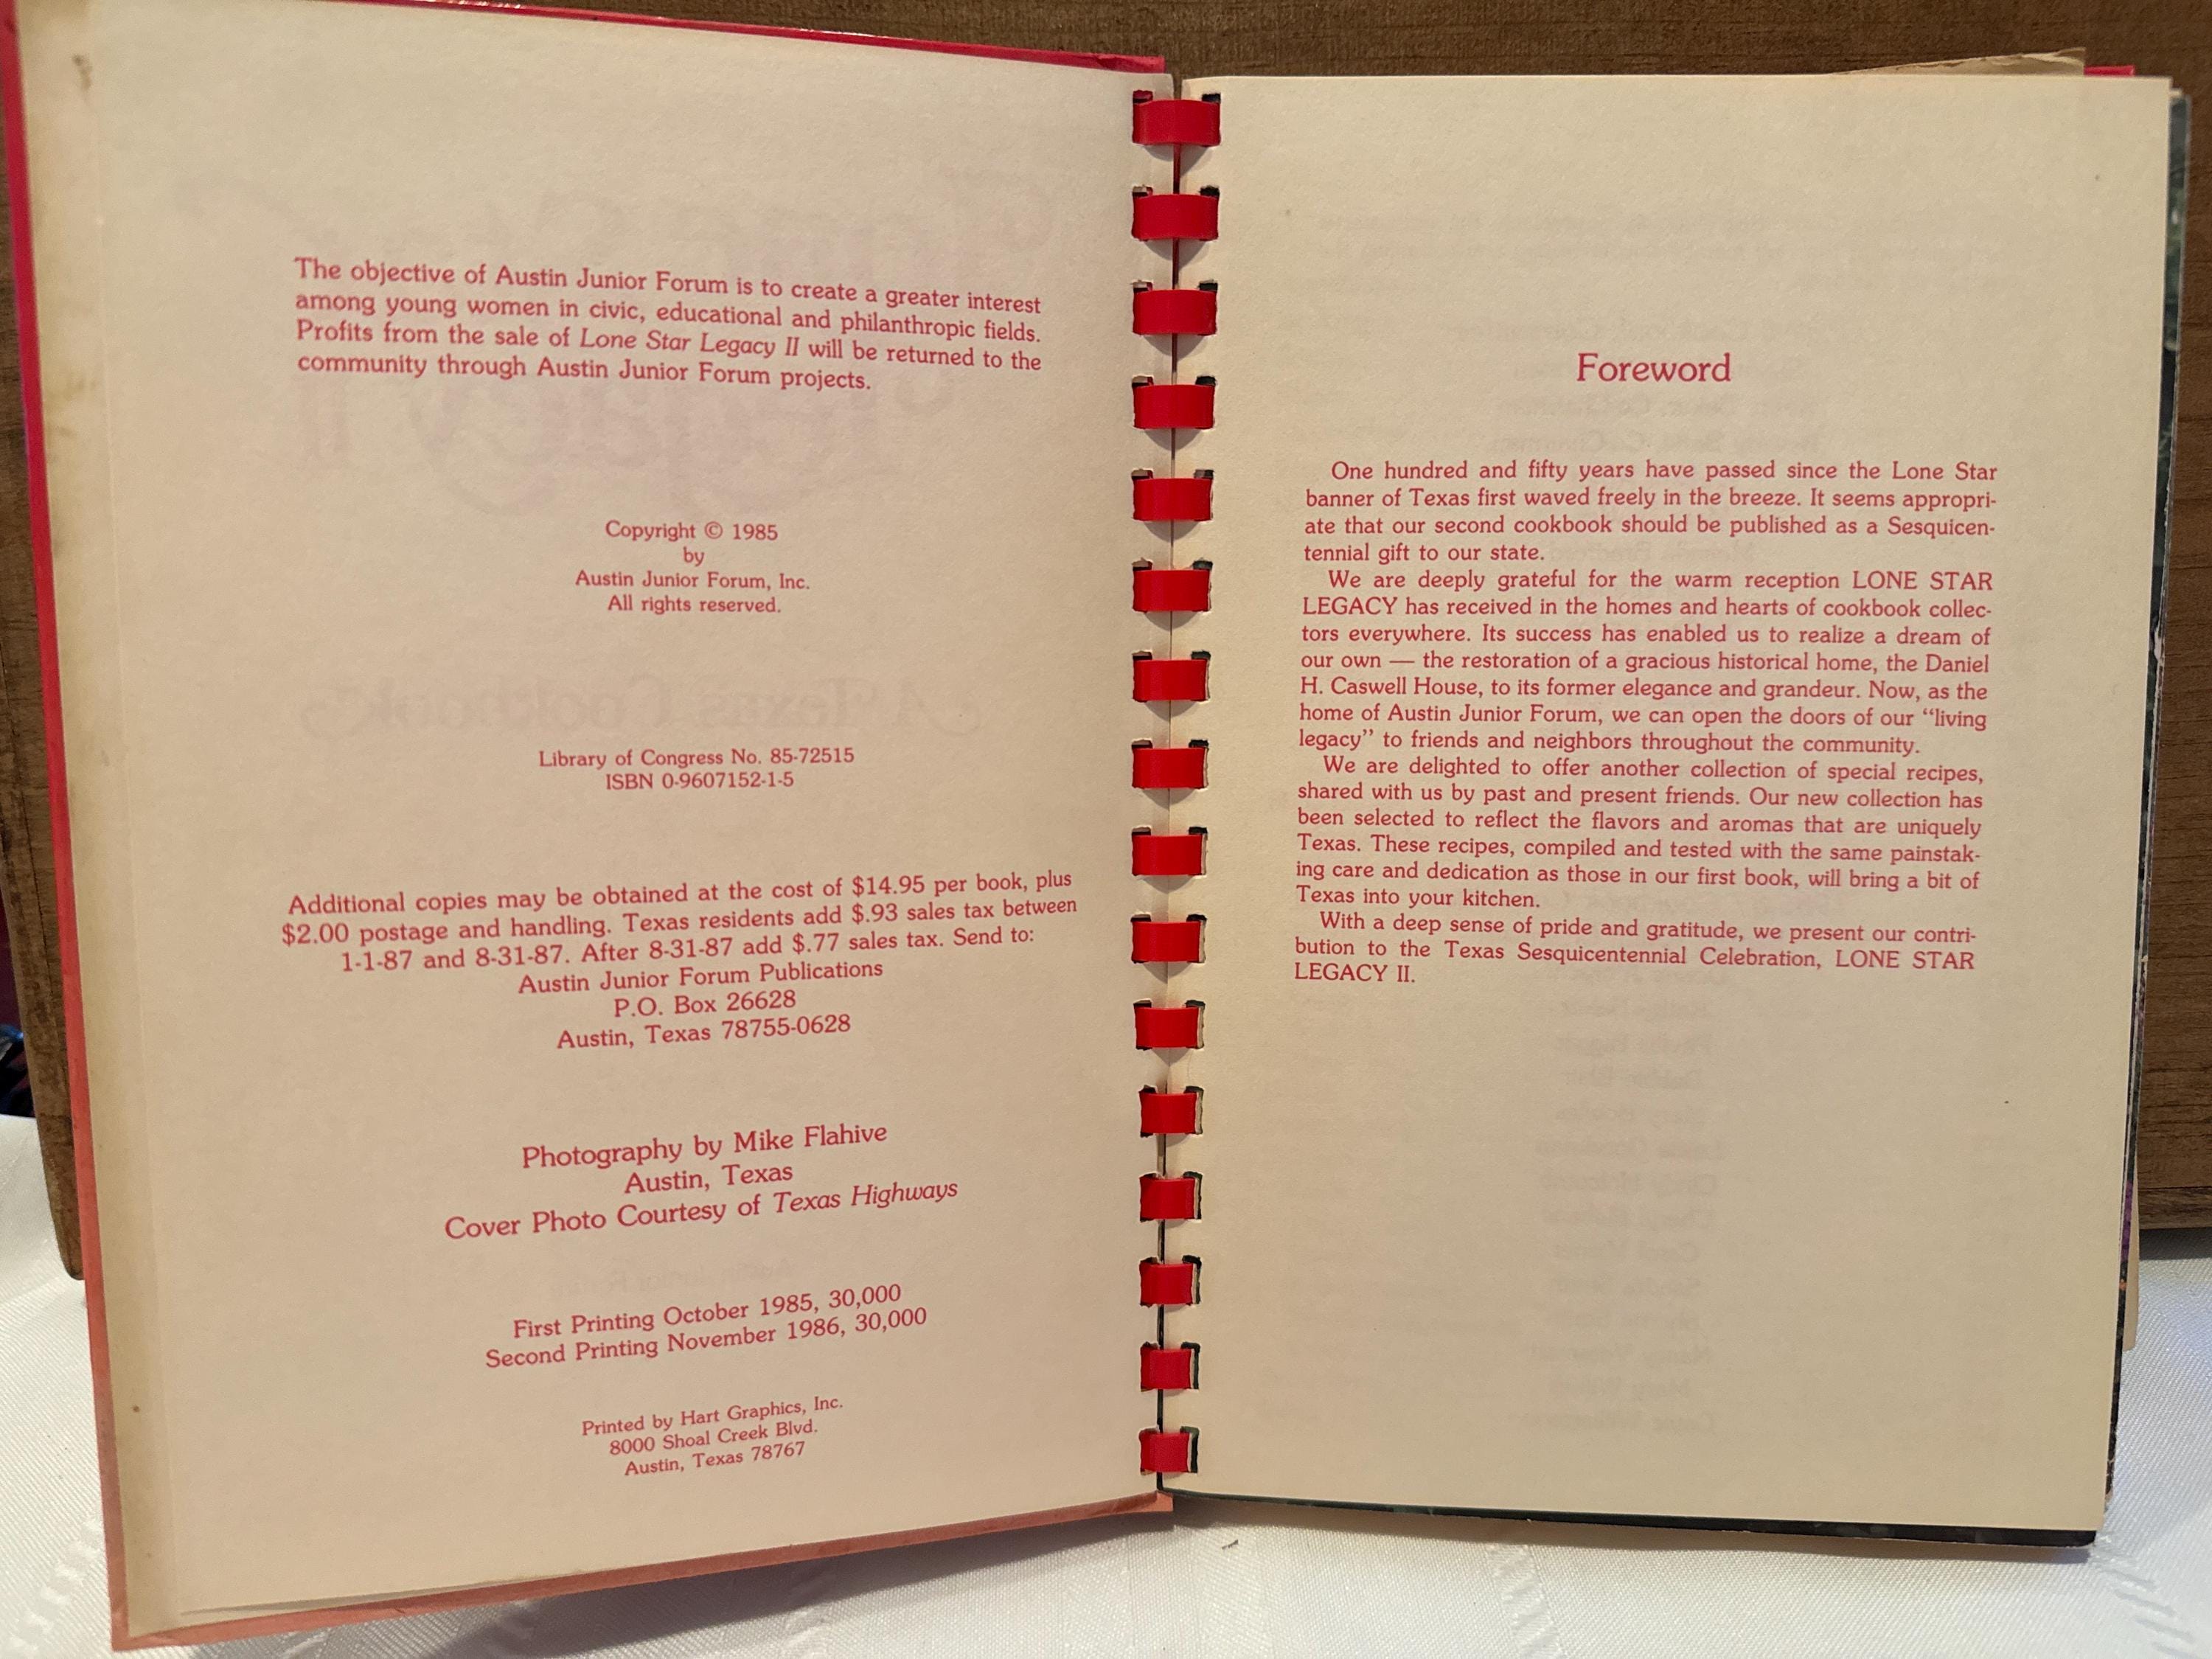 The objective of Austin Junior Forum is to create a greater interest
among young women in civic, educational and philanthropic fields.
Profits from the sale of Lone Star Legacy II will be returned to the
community through Austin Junior Forum projects.
Copyright © 1985
by
Austin Junior Forum, Inc.
All rights reserved.
Library of Congress No. 85-72515
ISBN 0-9607152-1-5
Additional copies may be obtained at the cost of $14.95 per book, plus
$2.00 postage and handling. Texas residents add $.93 sales tax between
1-1-87 and 8-31-87. After 8-31-87 add $.77 sales tax. Send to:
Austin Junior Forum Publications
P.O. Box 26628
Austin, Texas 78755-0628
Photography by Mike Flahive
Austin, Texas
Cover Photo Courtesy of Texas Highways
First Printing October 1985, 30,000
Second Printing November 1986, 30,000
Printed by Hart Graphics, Inc.
8000 Shoal Creek Blvd.
Austin, Texas 78767
Foreword
One hundred and fifty years have passed since the Lone Star
banner of Texas first waved freely in the breeze. It seems appropri-
ate that our second cookbook should be published as a Sesquicen-
tennial gift to our state.
We are deeply grateful for the warm reception LONE STAR
LEGACY has received in the homes and hearts of cookbook collec-
tors everywhere. Its success has enabled us to realize a dream of
our own — the restoration of a gracious historical home, the Daniel
H. Caswell House, to its former elegance and grandeur. Now, as the
home of Austin Junior Forum, we can open the doors of our "living
legacy" to friends and neighbors throughout the community.
We are delighted to offer another collection of special recipes,
shared with us by past and present friends. Our new collection has
been selected to reflect the flavors and aromas that are uniquely
Texas. These recipes, compiled and tested with the same painstak-
ing care and dedication as those in our first book, will bring a bit of
Texas into your kitchen.
With a deep sense of pride and gratitude, we present our contri-
bution to the Texas Sesquicentennial Celebration, LONE STAR
LEGACY II.